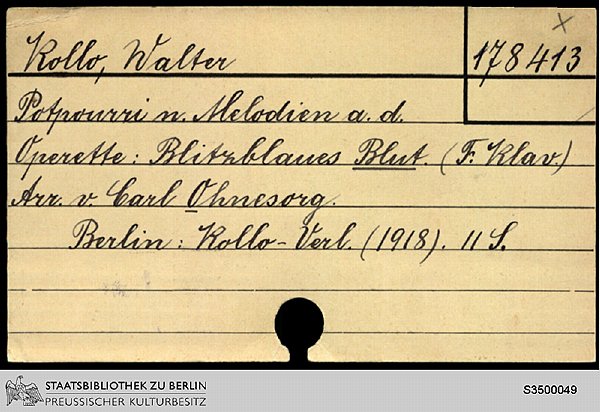 Kollo, Walter
178413
Potpourri n. Melodien a. d.
Operette: Blitzblaues Blut. (F. Klav.)
Arr. v. Carl Ohnesorg.
Berlin: Kollo-Verl. (1918). 11 S.
STAATSBIBLIOTHEK ZU BERLIN
PREUSSISCHER KULTURBESITZ
S3500049